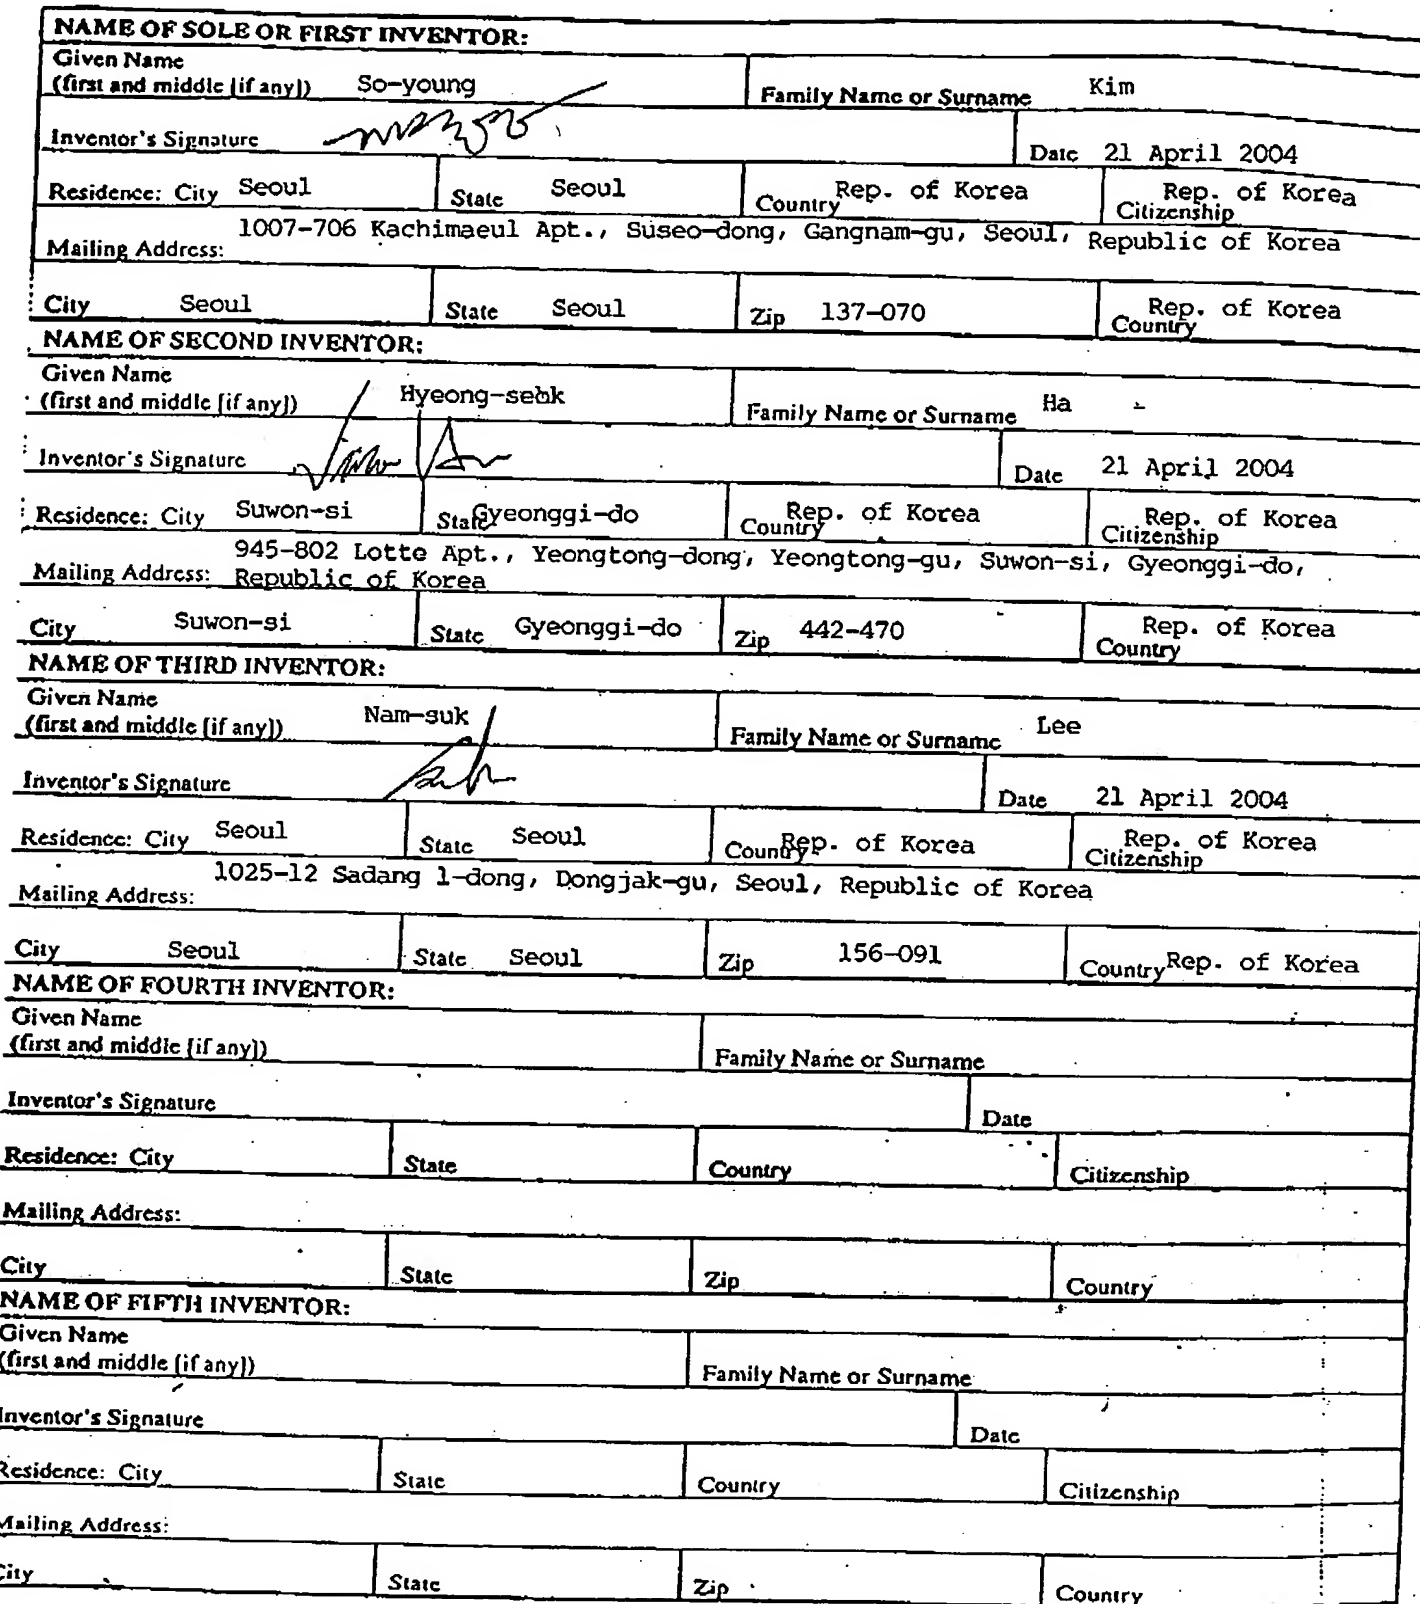 NAME OF SOLE OR FIRST INVENTOR:
Given Name
(first and middle [if any]) So-young Family Name or Surname Kim
Inventor's Signature Date 21 April 2004
Residence: City Seoul State Seoul Country Rep. of Korea Citizenship Rep. of Korea
Mailing Address: 1007-706 Kachimaeul Apt., Suseo-dong, Gangnam-gu, Seoul, Republic of Korea
City Seoul State Seoul Zip 137-070 Country Rep. of Korea
NAME OF SECOND INVENTOR:
Given Name
(first and middle [if any]) Hyeong-seok Family Name or Surname Ha
Inventor's Signature Date 21 April 2004
Residence: City Suwon-si State Gyeonggi-do Country Rep. of Korea Citizenship Rep. of Korea
945-802 Lotte Apt., Yeongtong-dong, Yeongtong-gu, Suwon-si, Gyeonggi-do,
Mailing Address: Republic of Korea
City Suwon-si State Gyeonggi-do Zip 442-470 Country Rep. of Korea
NAME OF THIRD INVENTOR:
Given Name
(first and middle [if any]) Nam-suk Family Name or Surname Lee
Inventor's Signature Date 21 April 2004
Residence: City Seoul State Seoul Country Rep. of Korea Citizenship Rep. of Korea
Mailing Address: 1025-12 Sadang 1-dong, Dongjak-gu, Seoul, Republic of Korea
City Seoul State Seoul Zip 156-091 Country Rep. of Korea
NAME OF FOURTH INVENTOR:
Given Name
(first and middle [if any]) Family Name or Surname
Inventor's Signature Date
Residence: City State Country Citizenship
Mailing Address:
City State Zip Country
NAME OF FIFTH INVENTOR:
Given Name
(first and middle [if any]) Family Name or Surname
Inventor's Signature Date
Residence: City State Country Citizenship
Mailing Address:
City State Zip Country